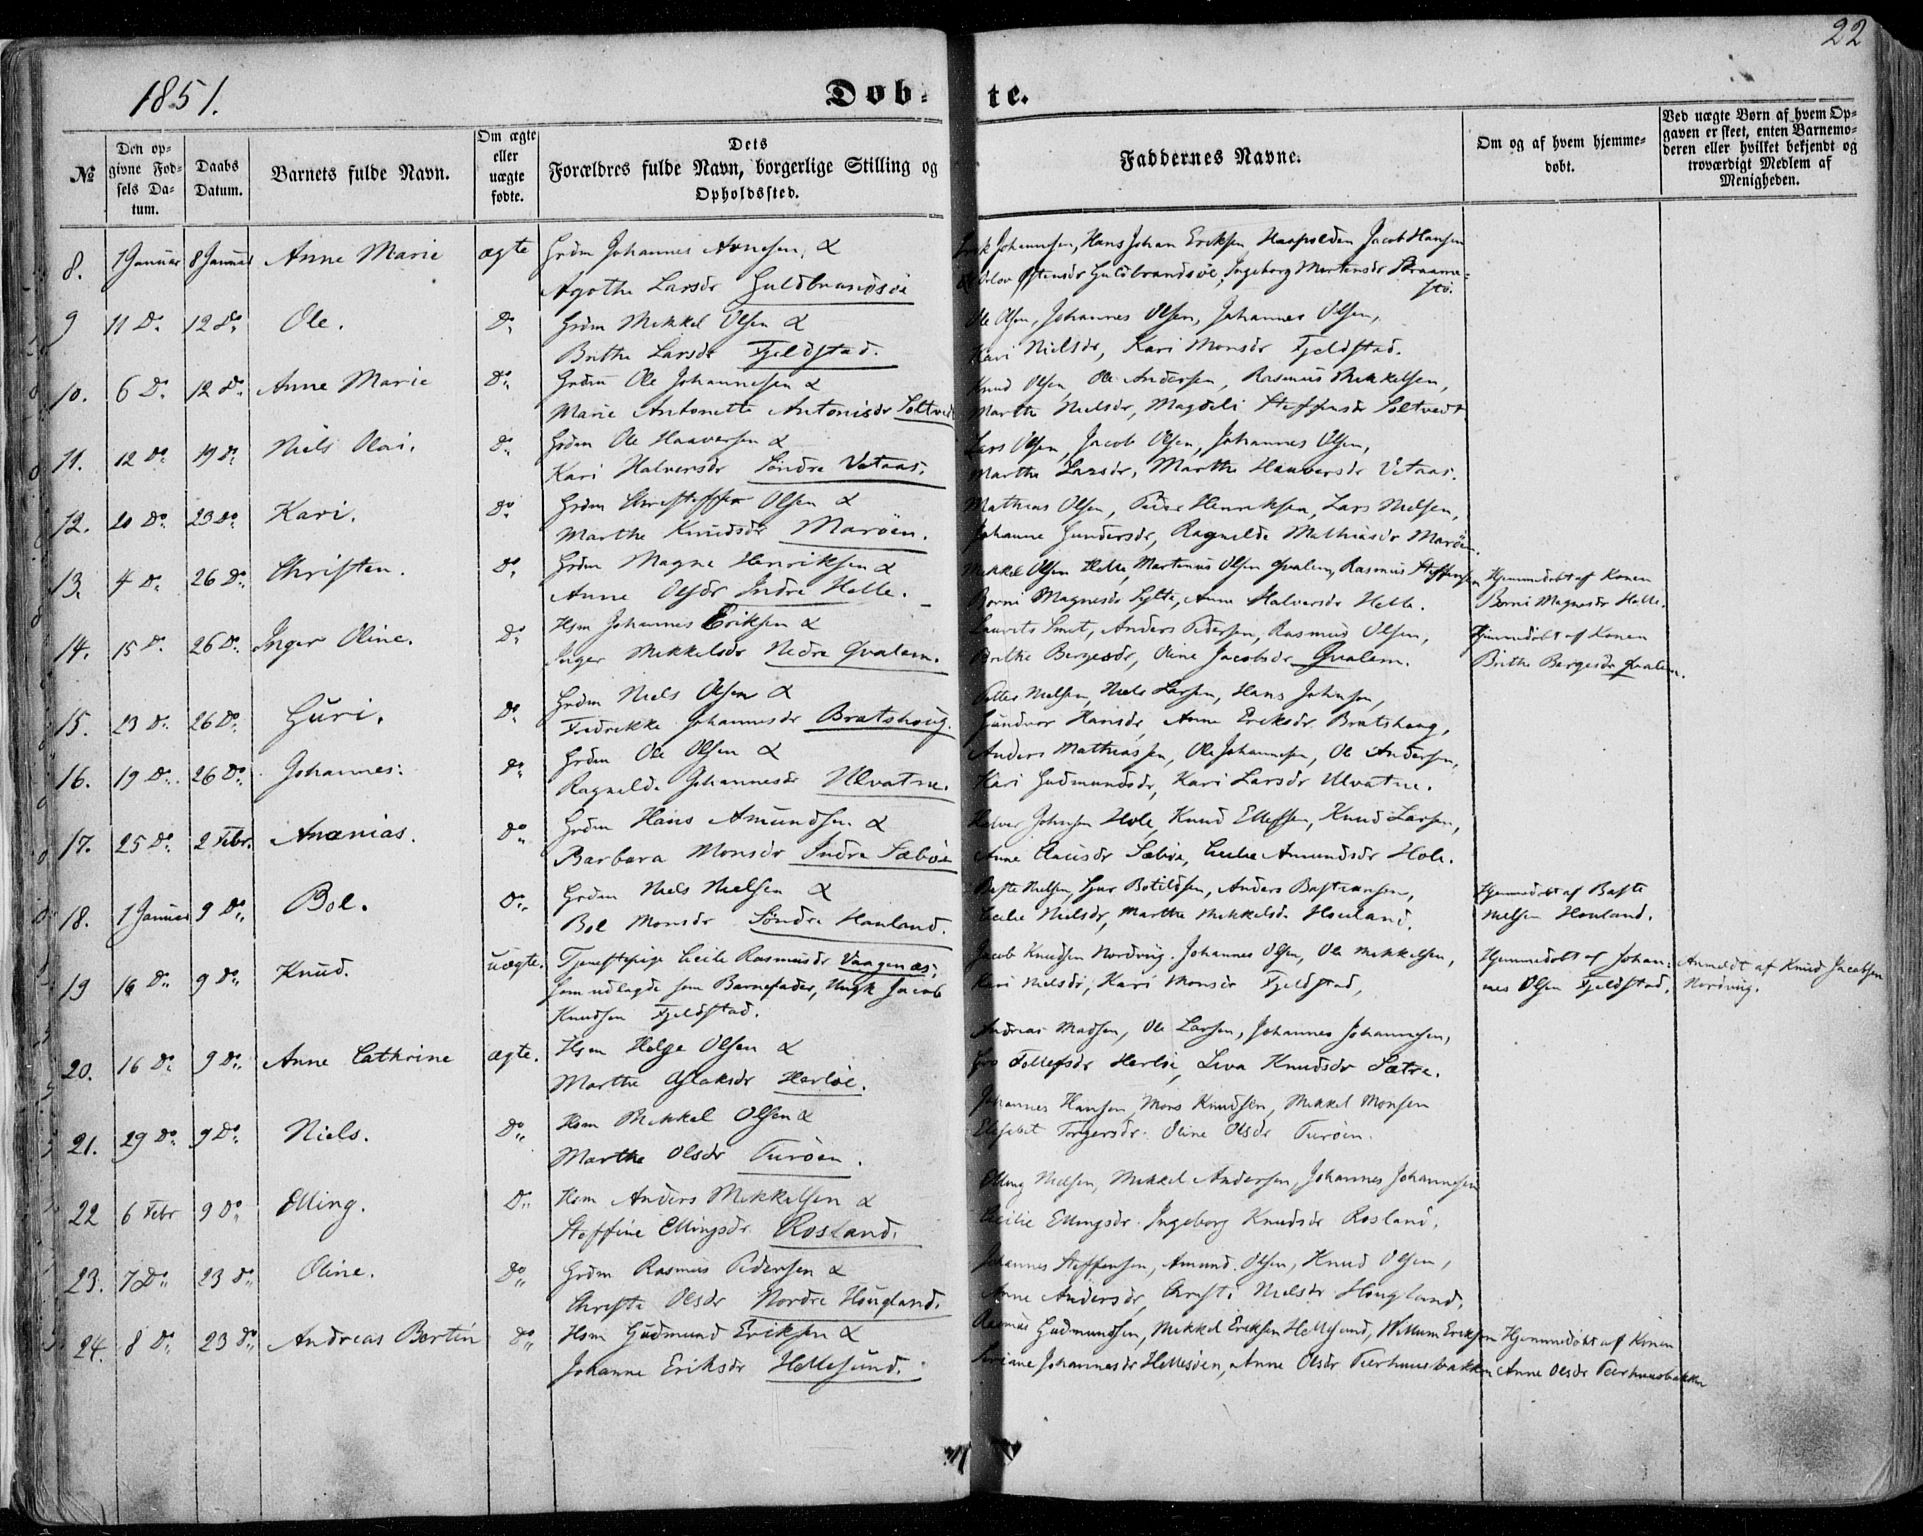 22
1851.
Døb- te.
№
Den op-
givne Fød-
sels Da-
tum.
Daabs
Datum.
Barnets fulde Navn.
Om ægte
eller
uægte
fødte.
Dets
Forældres fulde Navn, borgerlige Stilling og
Opholdssted.
Faddernes Navne.
Om og af hvem hjemme-
døbt.
Ved uægte Børn af hvem Op-
gaven er skeet, enten Barnemo-
deren eller hvilket bekjendt og
troværdigt Medlem af
Menigheden.
8. 1 Januar 8 Januar Anne Marie ægte Grdm Johannes Arnesen, & Johannesen, Hans Johan Eriksen Jacob Hansen
Agathe Larsdr Guldbrandsöe Guldbrandsöe, Ingeborg Martensdr
9 11 Do 12 Do Ole. Do Grdm Mikkel Olsen & Ole Olsen, Johannes Olsen, Johannes Olsen,
Brithe Larsdr Fjeldstad. Kari Nielsdr, Kari Monsdr Fjeldstad.
10. 6 Do 12 Do Anne Marie Do Grdm Ole Johannesen & Knud Olsen, Ole Andersen, Rasmus Mikkelsen,
Marie Antonette Antonisdr Soltvedt Marthe Nielsdr, Magdeli Steffensdr Soltvedt
11. 12 Do 19 Do Niels Olai. Do Grdm Ole Haaversen & Lars Olsen, Jacob Olsen, Johannes Olsen,
Kari Halversdr Söndre Vetaas. Marthe Larsdr, Marthe Haaversdr Vetaas.
12. 20 Do 23 Do Kari. Do Grdm Christoffer Olsen & Mathias Olsen, Peder Henriksen, Lars Nielsen,
Marthe Knudsdr Maröen. Johanne Gundersdr, Ragnilde Mathiasdr Maröen.
13. 4 Do 26 Do Christen. Do Grdm Magne Henriksen & Mikkel Olsen Helle, Martinus Olsen Qvalem, Rasmus Steffensen Hjemmedöbt af Konen
Anne Olsdr Indre Helle. Borni Magnesdr Sylte, Anne Halversdr Helle. Borni Magnesdr Helle.
14. 15 Do 26 Do Inger Oline. Do Hsm Johannes Eriksen & Laurits Smit, Anders Pedersen, Rasmus Olsen, Hjemmedöbt af Konen
Inger Mikkelsdr Nedre Qvalem. Brithe Bergesdr, Oline Jacobsdr Qvalem. Brithe Bergesdr Qvalem.
15. 23 Do 26 Do Guri. Do Grdm Niels Olsen & Petter Nielsen, Niels Larsen, Hans Johnsen,
Fredrikke Johannesdr Bratshoug. Gundvor Hansdr, Anne Eriksdr Bratshoug,
16. 19 Do 26 Do Johannes. Do Grdm Ole Olsen & Anders Mathiassen, Ole Johannesen, Ole Andersen,
Ragnilde Johannesdr Ulvatne. Kari Gudmundsdr, Kari Larsdr Ulvatne.
17. 25 Do 2 Febr. Ananias. Do Grdm Hans Amundsen & Halver Johnsen Hole, Knud Ellefsen, Knud Larsen,
Barbara Monsdr Indre Sæböe Anne Clausdr Sæböe, Cecilie Amundsdr Hole.
18. 1 Januar 9 Do Bol. Do Grdm Niels Nielsen & Baste Nielsen, Botildsen, Anders Bastiansen, Hjemmedöbt af Baste
Bol Monsdr Söndre Houland. Cecilie Nielsdr, Marthe Mikkelsdr Houland. Nielsen Houland.
19 16 Do 9 Do Knud. uægte. Tjenestepige Cicile Rasmusdr Vaagenæs, Jacob Knudsen Nordvig. Johannes Olsen, Ole Mikkelsen, Hjemmedöbt af Johan- Anmeldt af Knud Jacobsen
som udlagde som Barnefader, Ungk Jacob Kari Nielsdr, Kari Monsdr Fjeldstad, nes Olsen Fjeldstad. Nordvig.
Knudsen Fjeldstad.
20. 16 Do 9 Do Anne Cathrine ægte. Hsm Helge Olsen & Andreas Madsen, Ole Larsen, Johannes Johannesen,
Marthe Aslaksdr Herlöe. Gro Tollefsdr Herlöe, Siva Knudsdr Sætre.
21. 29 Do 9 Do Niels. Do Hsm Mikkel Olsen & Johannes Hansen, Mons Knudsen, Mikkel Monsen
Marthe Olsdr Turöen. Elisabet Torgersdr. Oline Olsdr Turöen.
22 6 Febr 9 Do Elling. Do Hsm Anders Mikkelsen & Elling Nielsen, Mikkel Andersen, Johannes Johannesen
Steffine Ellingsdr Rosland. Cecilie Ellingsdr. Ingeborg Knudsdr Rosland.
23. 7 Do 23 Do Oline. Do Grdm Rasmus Pedersen & Johannes Steffensen, Amund Olsen, Knud Olsen,
Christi Olsdr Nordre Hougland. Anne Andersdr, Christi Nielsdr Hougland.
24. 8 Do 23 Do Andreas Bertin Do Hsm Gudmund Eriksen & Rasmus Gudmundsen, Mikkel Eriksen Hellesund, Willum Eriksen Hjemmedöbt af Konen
Johanne Eriksdr Hellesund. Johannesdr Hellesöen, Anne Olsdr Teerhuusbakken Anne Olsdr Teerhuusbakken